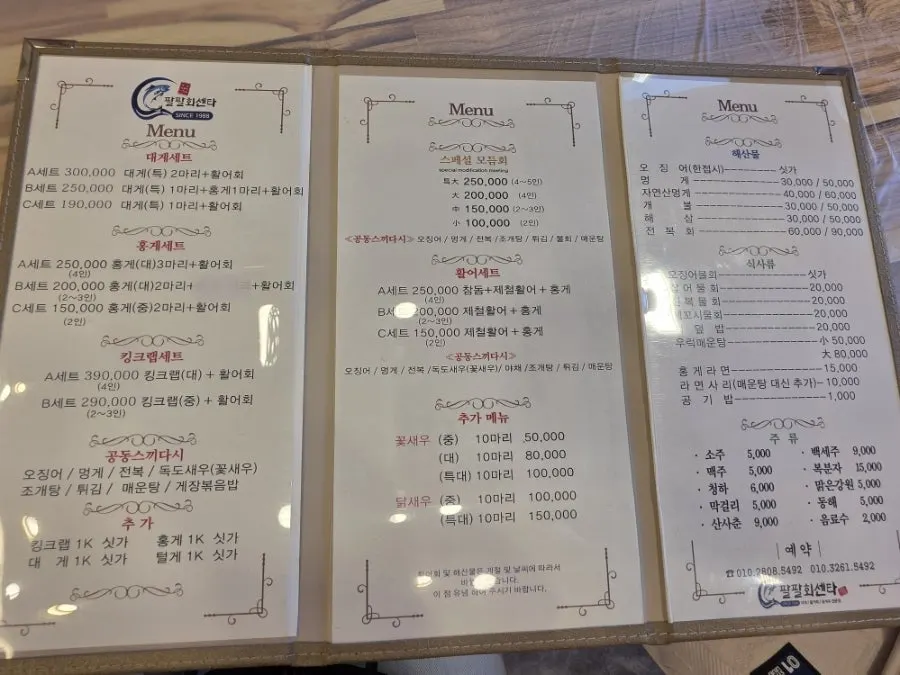 팔팔회센타
SINCE 1988
Menu
대게세트
A세트 300,000 대게(특) 2마리+활어회
B세트 250,000 대게(특) 1마리+홍게1마리+활어회
C세트 190,000 대게(특) 1마리+활어회
홍게세트
A세트 250,000 홍게(대)3마리+활어회
(4인)
B세트 200,000 홍게(대)2마리+ +활어회
(2~3인)
C세트 150,000 홍게(중)2마리+활어회
(2인)
킹크랩세트
A세트 390,000 킹크랩(대) + 활어회
(4인)
B세트 290,000 킹크랩(중) + 활어회
(2~3인)
공동스끼다시
오징어 / 멍게 / 전복 / 독도새우(꽃새우)
조개탕 / 튀김 / 매운탕 / 게장볶음밥
추 가
킹크랩 1K 싯가 홍게 1K 싯가
대 게 1K 싯가 털게 1K 싯가
Menu
스페셜 모듬회
special modification meeting
특大 250,000 (4~5인)
大 200,000 (4인)
中 150,000 (2~3인)
小 100,000 (2인)
≪공동스끼다시≫ 오징어 / 멍게 / 전복 / 조개탕 / 튀김 / 물회 / 매운탕
활어세트
A세트 250,000 참돔+제철활어+홍게
(4인)
B세트 200,000 제철활어 + 홍게
(2~3인)
C세트 150,000 제철활어 + 홍게
(2인)
≪공동스끼다시≫
오징어 / 멍게 / 전복 / 독도새우(꽃새우) / 야채 / 조개탕 / 튀김 / 매운탕
추가 메뉴
꽃새우 (중) 10마리 50,000
(대) 10마리 80,000
(특대) 10마리 100,000
닭새우 (중) 10마리 100,000
(특대) 10마리 150,000
활어회 및 해산물은 계절 및 날씨에 따라서
바 니다.
이 점 유념 하여 주시기 바랍니다.
Menu
해산물
오 징 어(한접시) 싯가
멍 게 30,000 / 50,000
자연산멍게 40,000 / 60,000
개 불 30,000 / 50,000
해 삼 30,000 / 50,000
전 복 회 60,000 / 90,000
식사류
오징어물회 싯가
어 물 회 20,000
복 물 회 20,000
꼬시물회 20,000
덮 밥 20,000
우럭매운탕 小 50,000
大 80,000
홍 게 라 면 15,000
라 면 사 리 (매운탕 대신 추가) 10,000
공 기 밥 1,000
주 류
· 소주 5,000 · 백세주 9,000
· 맥주 5,000 · 복분자 15,000
· 청하 6,000 · 맑은강원 5,000
· 막걸리 5,000 · 동해 5,000
· 산사춘 9,000 · 음료수 2,000
| 예 약 |
☎ 010.2808.5492 010.3261.5492
팔팔회센타